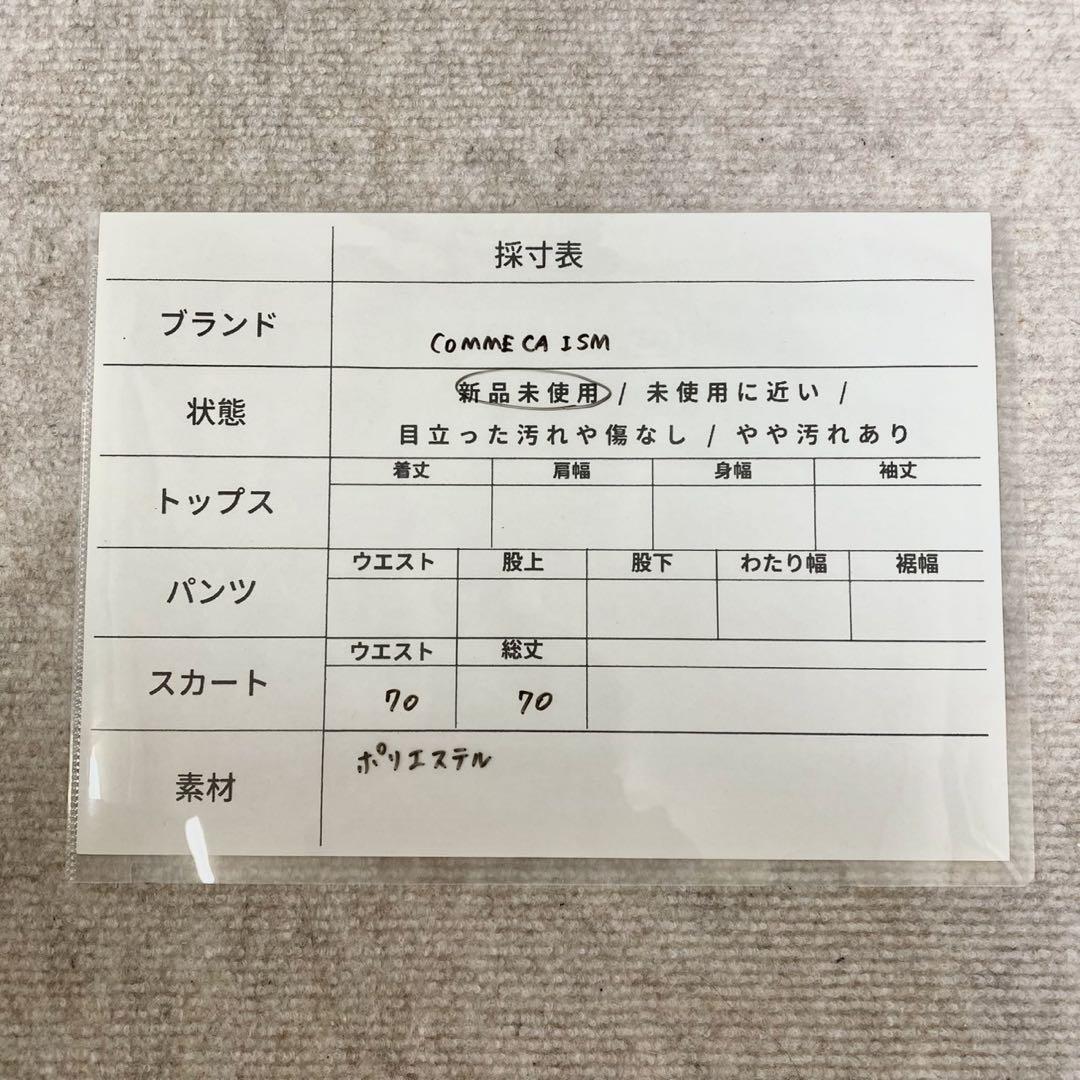 採寸表
ブランド
COMME CA ISM
状態
新品未使用 / 未使用に近い /
目立った汚れや傷なし / やや汚れあり
トップス
着丈 肩幅 身幅 袖丈
パンツ
ウエスト 股上 股下 わたり幅 裾幅
スカート
ウエスト 総丈
70 70
素材
ポリエステル